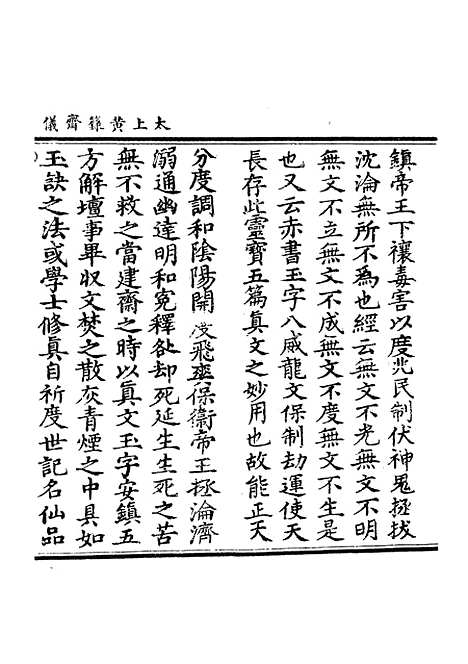 太上黃籙齋儀
鎮帝王下禳毒害以度兆民制伏神鬼拯拔
沈淪無所不為也經云無文不光無文不明
無文不立無文不成無文不度無文不生是
也又云赤書玉字八威龍文保制劫運使天
長存此靈寶五篇真文之妙用也故能正天
分度調和陰陽開度飛空保衛帝王拯淪濟
溺通幽達明和冤釋咎却死延生生死之苦
無不救之當建齋之時以真文玉字安鎮五
方解壇事畢収文焚之散灰青煙之中具如
玉訣之法或學士修真自祈度世記名仙品